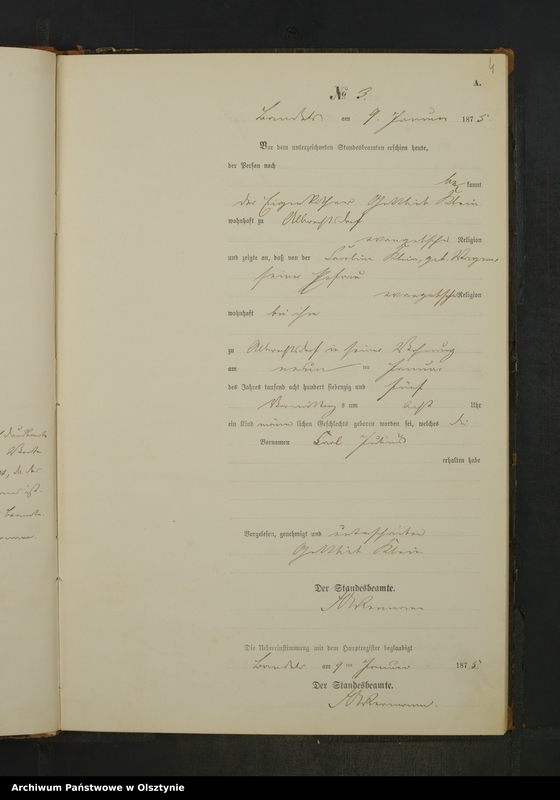 4
A.
№ 3.
am 9. Januar 1875.
Vor dem unterzeichneten Standesbeamten erschien heute,
der Person nach
bekannt
der Eigenkäthner Gottlieb Klein
wohnhaft zu Albrechtsdorf
evangelischer Religion
und zeigte an, daß von der Caroline Klein, geb.
seiner Ehefrau
evangelischer Religion
wohnhaft bei ihm
zu Albrechtsdorf in seiner Wohnung
am neun ten Januar
des Jahres tausend acht hundert siebenzig und fünf
Vormittags um acht Uhr
ein Kind männlichen Geschlechts geboren worden sei, welches die
Vornamen Carl Julius
erhalten habe
Vorgelesen, genehmigt und unterschrieben
Gottlieb Klein
Der Standesbeamte.
Die Uebereinstimmung mit dem Hauptregister beglaubigt
am 9 ten Januar 1875.
Der Standesbeamte.
Archiwum Państwowe w Olsztynie